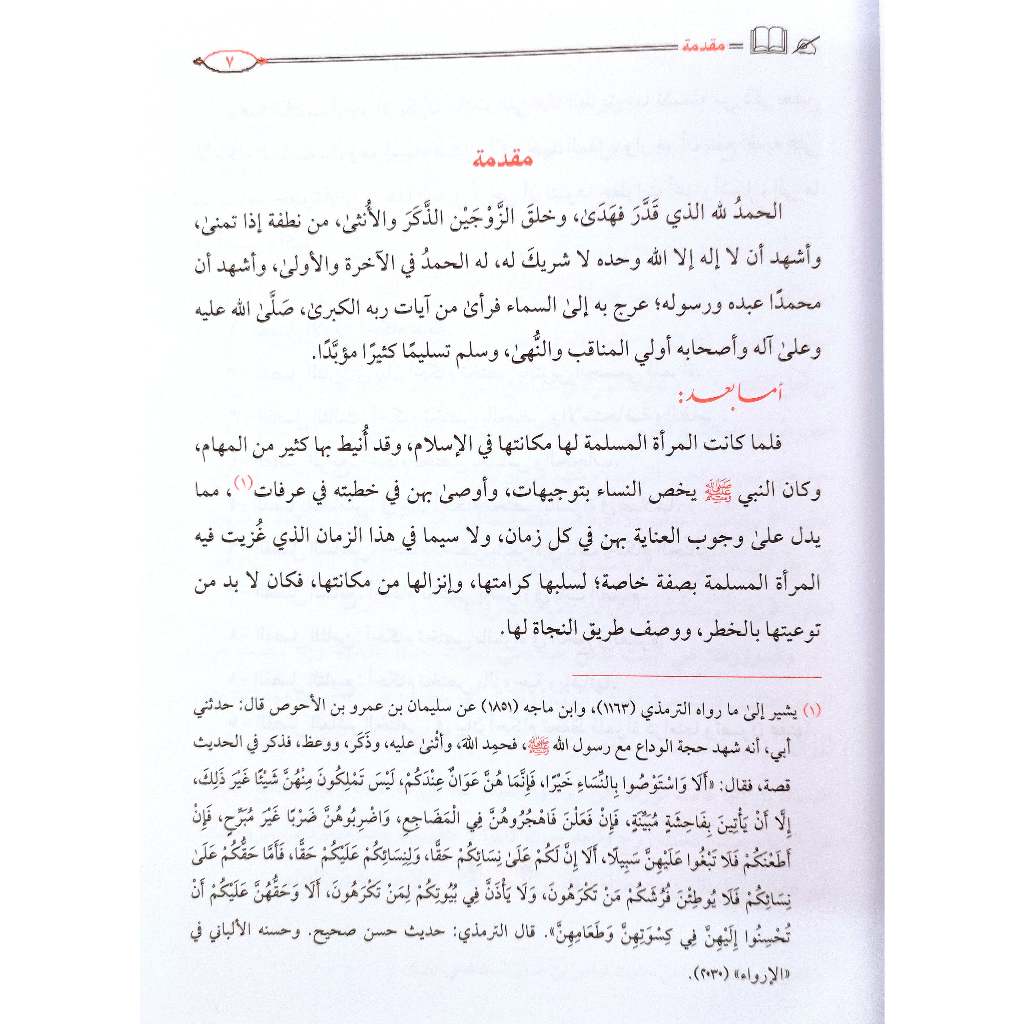 مقدمة
٧
مقدمة
الحمدُ لله الذي قَدَّرَ فهَدَىٰ، وخلقَ الزَّوْجَيْن الذَّكَرَ والأُنثىٰ، من نطفة إذا تمنىٰ،
وأشهد أن لا إله إلا الله وحده لا شريكَ له، له الحمدُ في الآخرة والأولىٰ، وأشهد أن
محمدًا عبده ورسوله؛ عرج به إلىٰ السماء فرأىٰ من آيات ربه الكبرىٰ، صَلَّىٰ الله عليه
وعلىٰ آله وأصحابه أولي المناقب والنُّهىٰ، وسلم تسليمًا كثيرًا مؤبَّدًا.
أما بعد:
فلما كانت المرأة المسلمة لها مكانتها في الإسلام، وقد أُنيط بها كثير من المهام،
وكان النبي ﷺ يخص النساء بتوجيهات، وأوصىٰ بهن في خطبته في عرفات(١)، مما
يدل علىٰ وجوب العناية بهن في كل زمان، ولا سيما في هذا الزمان الذي غُزيت فيه
المرأة المسلمة بصفة خاصة؛ لسلبها كرامتها، وإنزالها من مكانتها، فكان لا بد من
توعيتها بالخطر، ووصف طريق النجاة لها.
(١) يشير إلىٰ ما رواه الترمذي (١١٦٣)، وابن ماجه (١٨٥١) عن سليمان بن عمرو بن الأحوص قال: حدثني
أبي، أنه شهد حجة الوداع مع رسول الله ﷺ، فحمِد اللهَ، وأثْنىٰ عليه، وذَكَر، ووعظ، فذكر في الحديث
قصة، فقال: «أَلَا وَاسْتَوْصُوا بِالنِّسَاءِ خَيْرًا، فَإِنَّمَا هُنَّ عَوَانٌ عِنْدَكُمْ، لَيْسَ تَمْلِكُونَ مِنْهُنَّ شَيْئًا غَيْرَ ذَلِكَ،
إِلَّا أَنْ يَأْتِينَ بِفَاحِشَةٍ مُبَيِّنَةٍ، فَإِنْ فَعَلْنَ فَاهْجُرُوهُنَّ فِي الْمَضَاجِعِ، وَاضْرِبُوهُنَّ ضَرْبًا غَيْرَ مُبَرِّحٍ، فَإِنْ
أَطَعْنَكُمْ فَلَا تَبْغُوا عَلَيْهِنَّ سَبِيلًا، أَلَا إِنَّ لَكُمْ عَلَىٰ نِسَائِكُمْ حَقًّا، وَلِنِسَائِكُمْ عَلَيْكُمْ حَقًّا، فَأَمَّا حَقُّكُمْ عَلَىٰ
نِسَائِكُمْ فَلَا يُوطِئْنَ فُرُشَكُمْ مَنْ تَكْرَهُونَ، وَلَا يَأْذَنَّ فِي بُيُوتِكُمْ لِمَنْ تَكْرَهُونَ، أَلَا وَحَقُّهُنَّ عَلَيْكُمْ أَنْ
تُحْسِنُوا إِلَيْهِنَّ فِي كِسْوَتِهِنَّ وَطَعَامِهِنَّ». قال الترمذي: حديث حسن صحيح. وحسنه الألباني في
«الإرواء» (٢٠٣٠).